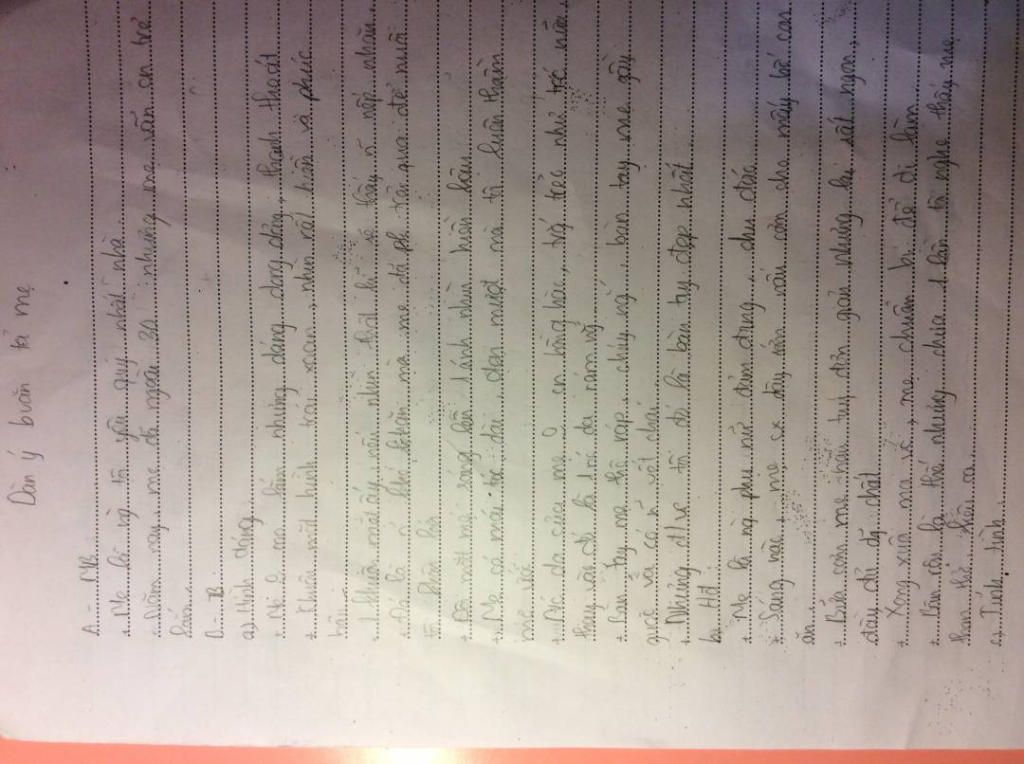 Dàn ý bvăn tả mẹ
A - MB
+ Mẹ là ng tôi yêu quý nhất nhà
+ Năm nay, mẹ đã ngoài 30 nhưng mẹ vẫn cn trẻ
lắm
B - TB
a) Hình dáng
+ Mẹ o cao lắm nhưng dáng dong dỏng, thanh thoát
+ Khuôn mặt hình trái xoan, nhìn rất hiền và phúc
hậu
+ khuôn mặt ấy, nếu nhìn thật kĩ sẽ thấy n nếp nhăn
+ Đó là n khó khăn mà mẹ đã ph trải qua để nuôi
tôi khôn lớn
+ Đôi mắt mẹ sáng lấp lánh nhìn hiền hậu
+ Mẹ có mái tóc dài, đen mượt mà tôi luôn thầm
+ Nc da của mẹ o cn hồng hào, trắng trẻo như trc nữa,
thay vào đó là 1 nc da rám nắng
+ Bàn tay mẹ thô ráp, cháy nắng, bàn tay mẹ gầy
guộc và có n vết chai
+ Nhưng đ/v tôi đó là bàn tay đẹp nhất
b) HĐ
+ Mẹ là ng phụ nữ đảm đang, chu đáo
+ Sáng nào, mẹ cx dậy sớm nấu cơm cho mấy bố con
ăn
+ Bữa cơm mẹ nấu tuy đơn giản nhưng lại rất ngon,
đầy đủ dg chất
+ Xong xuôi mọi vc, mẹ chuẩn bị để đi làm
+ Vất vả là thế nhưng chưa 1 lần tôi nghe thấy mẹ
than thở kêu ca
c) Tính tình